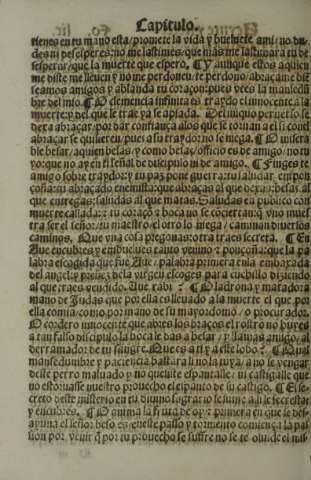 Capitulo.
tienes en tu mano esta/ promete la vida y bueluete a mi/ no du-
des ni desesperes: no me lastimes/ que mas me lastimara tu de
sesperar/ que la muerte que espero. ¶ Y aunque estos a quien
me diste me lleuen y no me perdonen/ te perdono/ abraçame biẽ
seamos amigos y ablanda tu coraçon: pues vees la mansedũ
bre del mio. ¶ O clemencia infinita es traydo el innocente a la
muerte: y del que le trae ya se apiada. Del iniquo peruerso se
dexa abraçar/ por dar confiança a los que se tornan a el si
abraçar se quisieren/ pues a su traydor no se niega. ¶ O misera
ble besar/ a quien besas/ y como besas/ officio es de amigo: no tu
yo: que no ay en ti señal de discipulo ni de amigo. ¶ Finges te
amigo sobre traydor: y tu paz pone guerra: tu saludar empon
çoña: tu abraçado enemista: que abraças al que dexas: besas al
que entregas: saludas al que matas. Saludas en publico con
muerte callada: tu coraçõ y boca no se cõciertan: que vno mues
tra ser el señor/ tu maestro: el otro lo niega/ caminan diuersos
caminos. Que vna cosa pregonas: otra traes secreta. ¶ En
Aue encubres y embuelues tanto veneno y ponçoña: que la pa
labra escogida que fue Aue/ palabra primera en la embaxada
del angel: y preñez dela virgen escoges para cuchillo diziendo
al que traes vendido. Aue rabi? ¶ O ladrona y matadora
mano de Judas que por ella es lleuado a la muerte el que por
ella comia/ como por mano de su mayordomo/ o procurador.
¶ O cordero innocente que abres los braços el rostro no huyes
a tan falso discipulo la boca le das a besar/ y llamas amigo/ al
derramador de tu sangre. Que es a ti y a este lobo? ¶ Qual
mansedumbre y paciencia bastara si no la tuya/ a no se vengar
deste perro maluado y no quisiste espantalle/ ni castigalle que
no estoruasse nuestro prouecho el espanto de su castigo. ¶ El se-
creto deste misterio en tu diuino sagrario se
y encubres. ¶ O anima la fruta de oy: primera en que se des-
ayuna el señor beso es en este passo y tormento comiença la pas
sion por venir: que por tu prouecho se suffre no se te oluide el mis